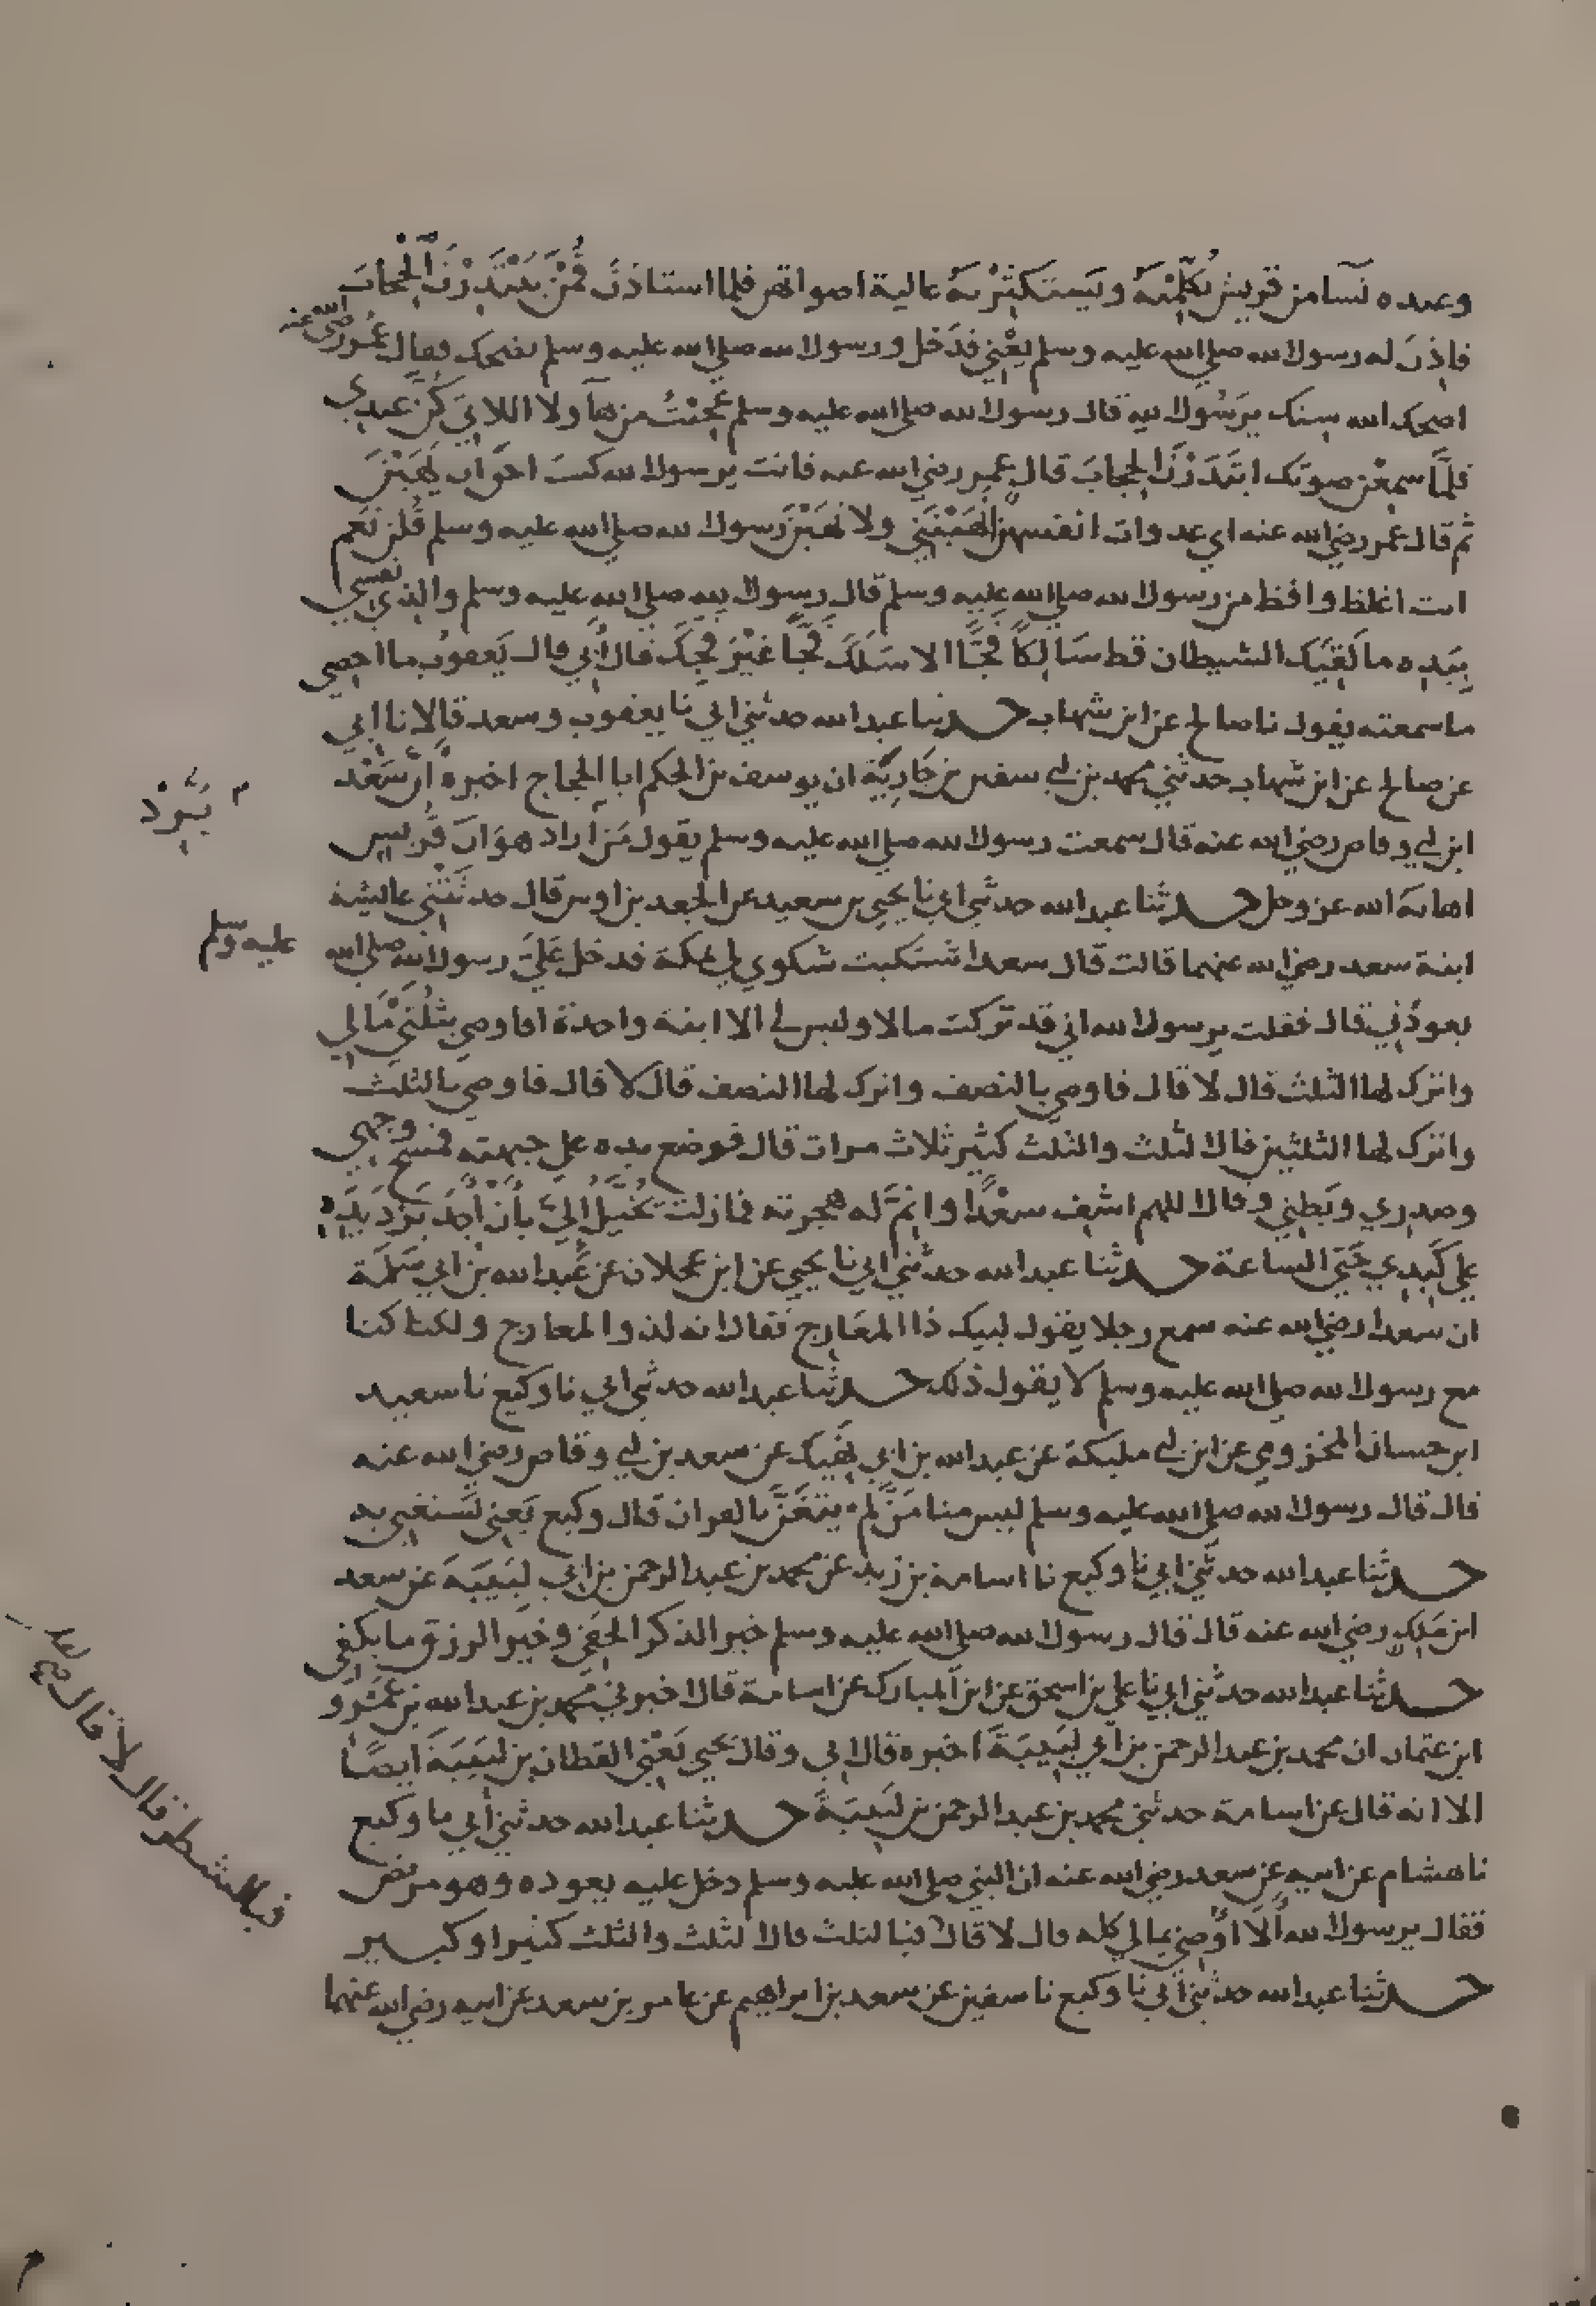 وعنده نسآ من قريش يُكَلِّمْنَهُ ويَستكثِرْنهُ عالية اصواتهن فلما استاذن قُمْنَ يَبْتَدِرْنَ الحِجابَ
فاذِنَ له رسول الله صلى الله عليه وسلم يَعْنِي فدَخل ورسول الله صلى الله عليه وسلم يضحك فقال عُمر رضي الله عنه
اضحك الله سِنك يرَسُول الله قال رسول الله صلى الله عليه وسلم عَجِبْتُ من هآولا اللاتي كُنَّ عِندِي
فلمَّا سمِعْن صوتك ابتَدَرْنَ الحِجابَ قال عمر رضي الله عنه فانت يرسول الله كنتَ احَق ان يَهَبْنَ
ثم قال عمر رضي الله عنه اي عدوات انفسهن اتَهَبْنَنِي ولا تهَبْنَ رَسول الله صلى الله عليه وسلم قُلن نَعَم
انت اغلظ وافظ من رسول الله صلى الله عليه وسلم قال رسول الله صلى الله عليه وسلم والذي نفسي
بِيَدِه ما لَقِيَك الشيطان قط سَالِكًا فجًّا الا سَلَكَ فجًّا غيْرَ فجِّكَ قال أبي قال يَعقوبُ ما احصِي
ما سمعته يقول نا صالح عن ابن شهاب حدثنا عبد الله حدثني ابي نا يعقوب وسعد قالا نا ابي
عن صالح عن ابن شهاب حدثني محمد بن ابي سفين بن جَارِيَة ان يوسف بن الحكم ابا الحجاج اخبره أنّ سَعْد
ابن ابي وقاص رضي الله عنه قال سمعت رسول الله صلى الله عليه وسلم يقول مَن اراد هوَان قُريش
اهانه الله عز وجل حدثنا عبد الله حدثني ابي نا يحيى بن سعيد عن الجعد بن اوس قال حدثَتْنِي عائشة
ابنة سعد رضي الله عنهما قالت قال سعد اشتكيت شكوي لي بمكة فدخل عَليَّ رسول الله صلى الله
عليه وسلم
يعودُني قال فقلت يرسول الله اني قد تركت مالا وليس لي الا ابنة واحدة افاوصي بثُلُثَيْ مَالي
واترك لها الثلث قال لا قال فاوصي بالنصف واترك لها النصف قال لا قال فاوصي بالثلث
واترك لها الثلثين قال الثلث والثلث كثير ثلاث مرات قال فوضع يده على جبهته فمسح وجهي
وصدري وبَطني وقال اللهم اشف سعْدًا وأتمَّ له هجرته فما زلت يُخيَّلُ إليَّ بأن أجدَ بَرْدَ يَدِهِ
بَرْد
على كَبِدِي حَتى الساعة حدثنا عبد الله حدثني ابي نا يحيى عن ابن عجلان عن عَبد الله بن ابي سَلَمَة
ان سعدا رضي الله عنه سمع رجلا يقول لبيك ذا المعَارِج فقال انه لذو المعارج ولكنا كنا
مع رسول الله صلى الله عليه وسلم لا يقول ذلك حدثنا عبد الله حدثني ابي نا وكيع نا سعيد
ابن حسان المخزومي عن ابن ابي مليكة عن عبد الله بن ابي نَهِيك عن سعد بن ابي وقاص رضي الله عنه
قال قال رسول الله صلى الله عليه وسلم ليس منا مَنْ لم يتغَنَّ بالقران قال وكيع يَعني يَستغني به
حدثنا عبد الله حدثني ابي نا وكيع نا اسامة بن زيد عن محمد بن عبد الرحمن بن ابي لَبِيبَة عن سعد
ابن مَلِك رضي الله عنه قال قال رسول الله صلى الله عليه وسلم خير الذكر الخَفِي وخير الرزق ما يكفي
حدثنا عبد الله حدثني ابي نا علي بن اسحق عن ابن المبارك عن اسامة قال اخبرني محمد بن عبد الله بن عَمْرو
ابن عثمان ان محمد بن عبد الرحمن بن ابي لَبِيبَةَ اخبره قال ابي وقال يحيى يَعْني القطان بن لَبِيبَةَ ايضًا
الا انه قال عن اسامة حدثني محمد بن عبد الرحمن بن لَبيبَة حدثنا عبد الله حدثني أبي نا وكيع
نا هشام عن ابيه عن سعد رضي الله عنه ان النبي صلى الله عليه وسلم دخل عليه يعوده وهو مريض
فقال يرسول الله ألا اُوصِي بمالي كله قال لا قال فبالثلث قال الثلث والثلث كثير او كبير
فبالشطر قال لا قال
حدثنا عبد الله حدثني أبي نا وكيع نا سفين عن سعد بن ابراهيم عن عامر بن سعد عن ابيه رضي الله عنهما